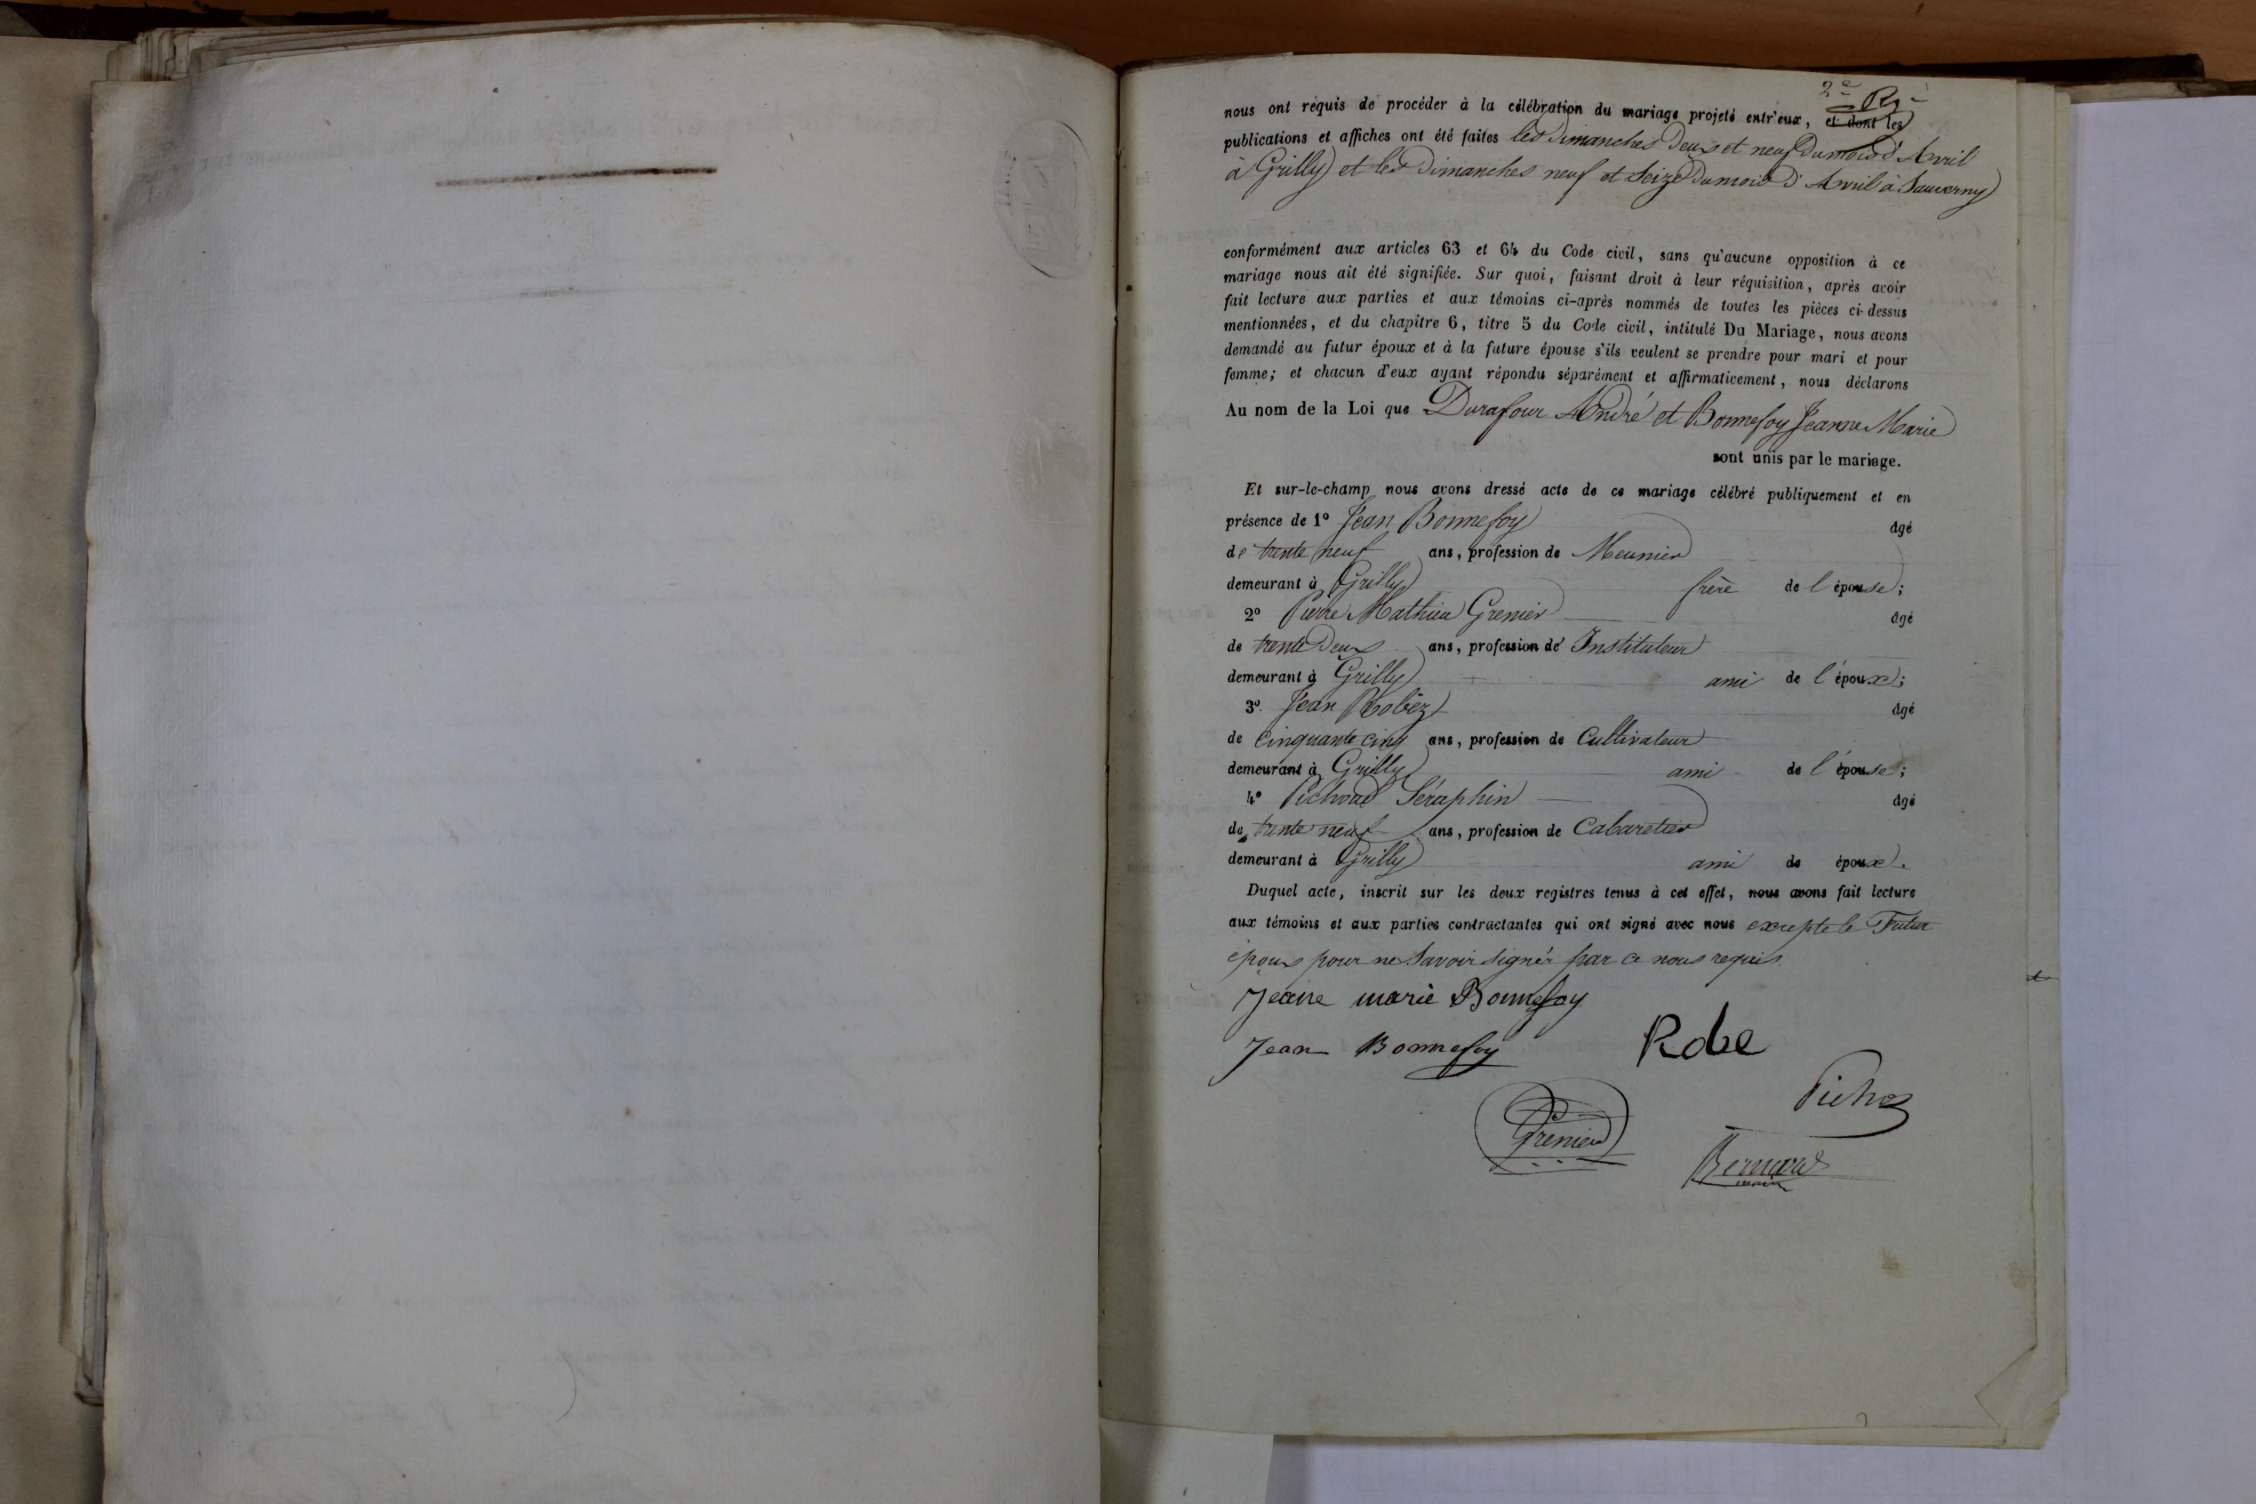 2e
nous ont requis de procéder à la célébration du mariage projeté entr'eux, et dont les
publications et affiches ont été faites les Dimanches Deux et neuf du mois d'Avril
à Grilly et les Dimanches neuf et Seize du mois d'Avril à Sauverny
conformément aux articles 63 et 64 du Code civil, sans qu'aucune opposition à ce
mariage nous ait été signifiée. Sur quoi, faisant droit à leur réquisition, après avoir
fait lecture aux parties et aux témoins ci-après nommés de toutes les pièces ci-dessus
mentionnées, et du chapitre 6, titre 5 du Code civil, intitulé Du Mariage, nous avons
demandé au futur époux et à la future épouse s'ils veulent se prendre pour mari et pour
femme; et chacun d'eux ayant répondu séparément et affirmativement, nous déclarons
Au nom de la Loi que Durafour André et Bonnefoy Jeanne Marie
sont unis par le mariage.
Et sur-le-champ nous avons dressé acte de ce mariage célébré publiquement et en
présence de 1º Jean Bonnefoy âgé
de trente neuf ans, profession de Meunier
demeurant à Grilly frère de l'épouse;
2º Pierre Mathieu Grenier âgé
de trente Deux ans, profession de Instituteur
demeurant à Grilly ami de l'époux;
3º Jean Robez âgé
de Cinquante cinq ans, profession de Cultivateur
demeurant à Grilly ami de l'épouse;
4º Pichoud Séraphin âgé
de trente neuf ans, profession de Cabaretier
demeurant à Grilly ami de époux.
Duquel acte, inscrit sur les deux registres tenus à cet effet, nous avons fait lecture
aux témoins et aux parties contractantes qui ont signé avec nous excepté le Futur
époux pour ne Savoir signer par ce nous requis.
Jeane marie Bonnefoy
Jean Bonnefoy Robe
Grenier